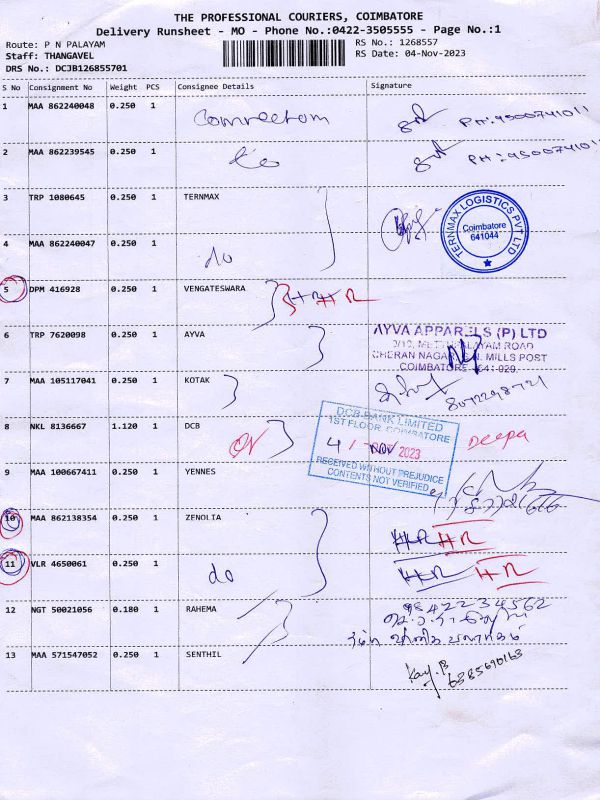 THE PROFESSIONAL COURIERS, COIMBATORE
Delivery Runsheet - MO - Phone No.:0422-3505555 - Page No.:1
Route: P N PALAYAM
Staff: THANGAVEL
DRS No.: DCJB126855701
RS No.: 1268557
RS Date: 04-Nov-2023
S No Consignment No Weight PCS Consignee Details Signature
1 MAA 862240048 0.250 1 PH:9500741011
2 MAA 862239545 0.250 1 PH:9500741011
3 TRP 1080645 0.250 1 TERNMAX
TERNMAX LOGISTICS PVT LTD
Coimbatore
641044
4 MAA 862240047 0.250 1 do
5 DPM 416928 0.250 1 VENGATESWARA HR HR
6 TRP 7620098 0.250 1 AYVA
AYVA APPARELS (P) LTD
METTUPALAYAM ROAD
CHERAN NAGAR, G.N. MILLS POST
COIMBATORE - 641 029.
7 MAA 105117041 0.250 1 KOTAK 8072298721
8 NKL 8136667 1.120 1 DCB ON Deepa
DCB BANK LIMITED
1ST FLOOR, COIMBATORE
4 NOV 2023
RECEIVED WITHOUT PREJUDICE
CONTENTS NOT VERIFIED
9 MAA 100667411 0.250 1 YENNES
10 MAA 862138354 0.250 1 ZENOLIA HR HR
11 VLR 4650061 0.250 1 do HR HR
12 NGT 50021056 0.180 1 RAHEMA 9842234562
13 MAA 571547052 0.250 1 SENTHIL 6385690163